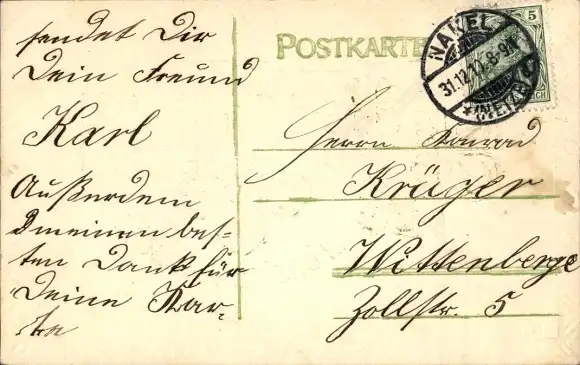 sendet Dir
Dein Freund
Karl
Außerdem
meinen bes-
ten Dank für
Deine Kar-
te
POSTKARTE
5
NAKEL
31.12.11. 8-9V
*(NETZE)
Herrn Konrad
Krüger
Wittenberge
Zollstr. 5